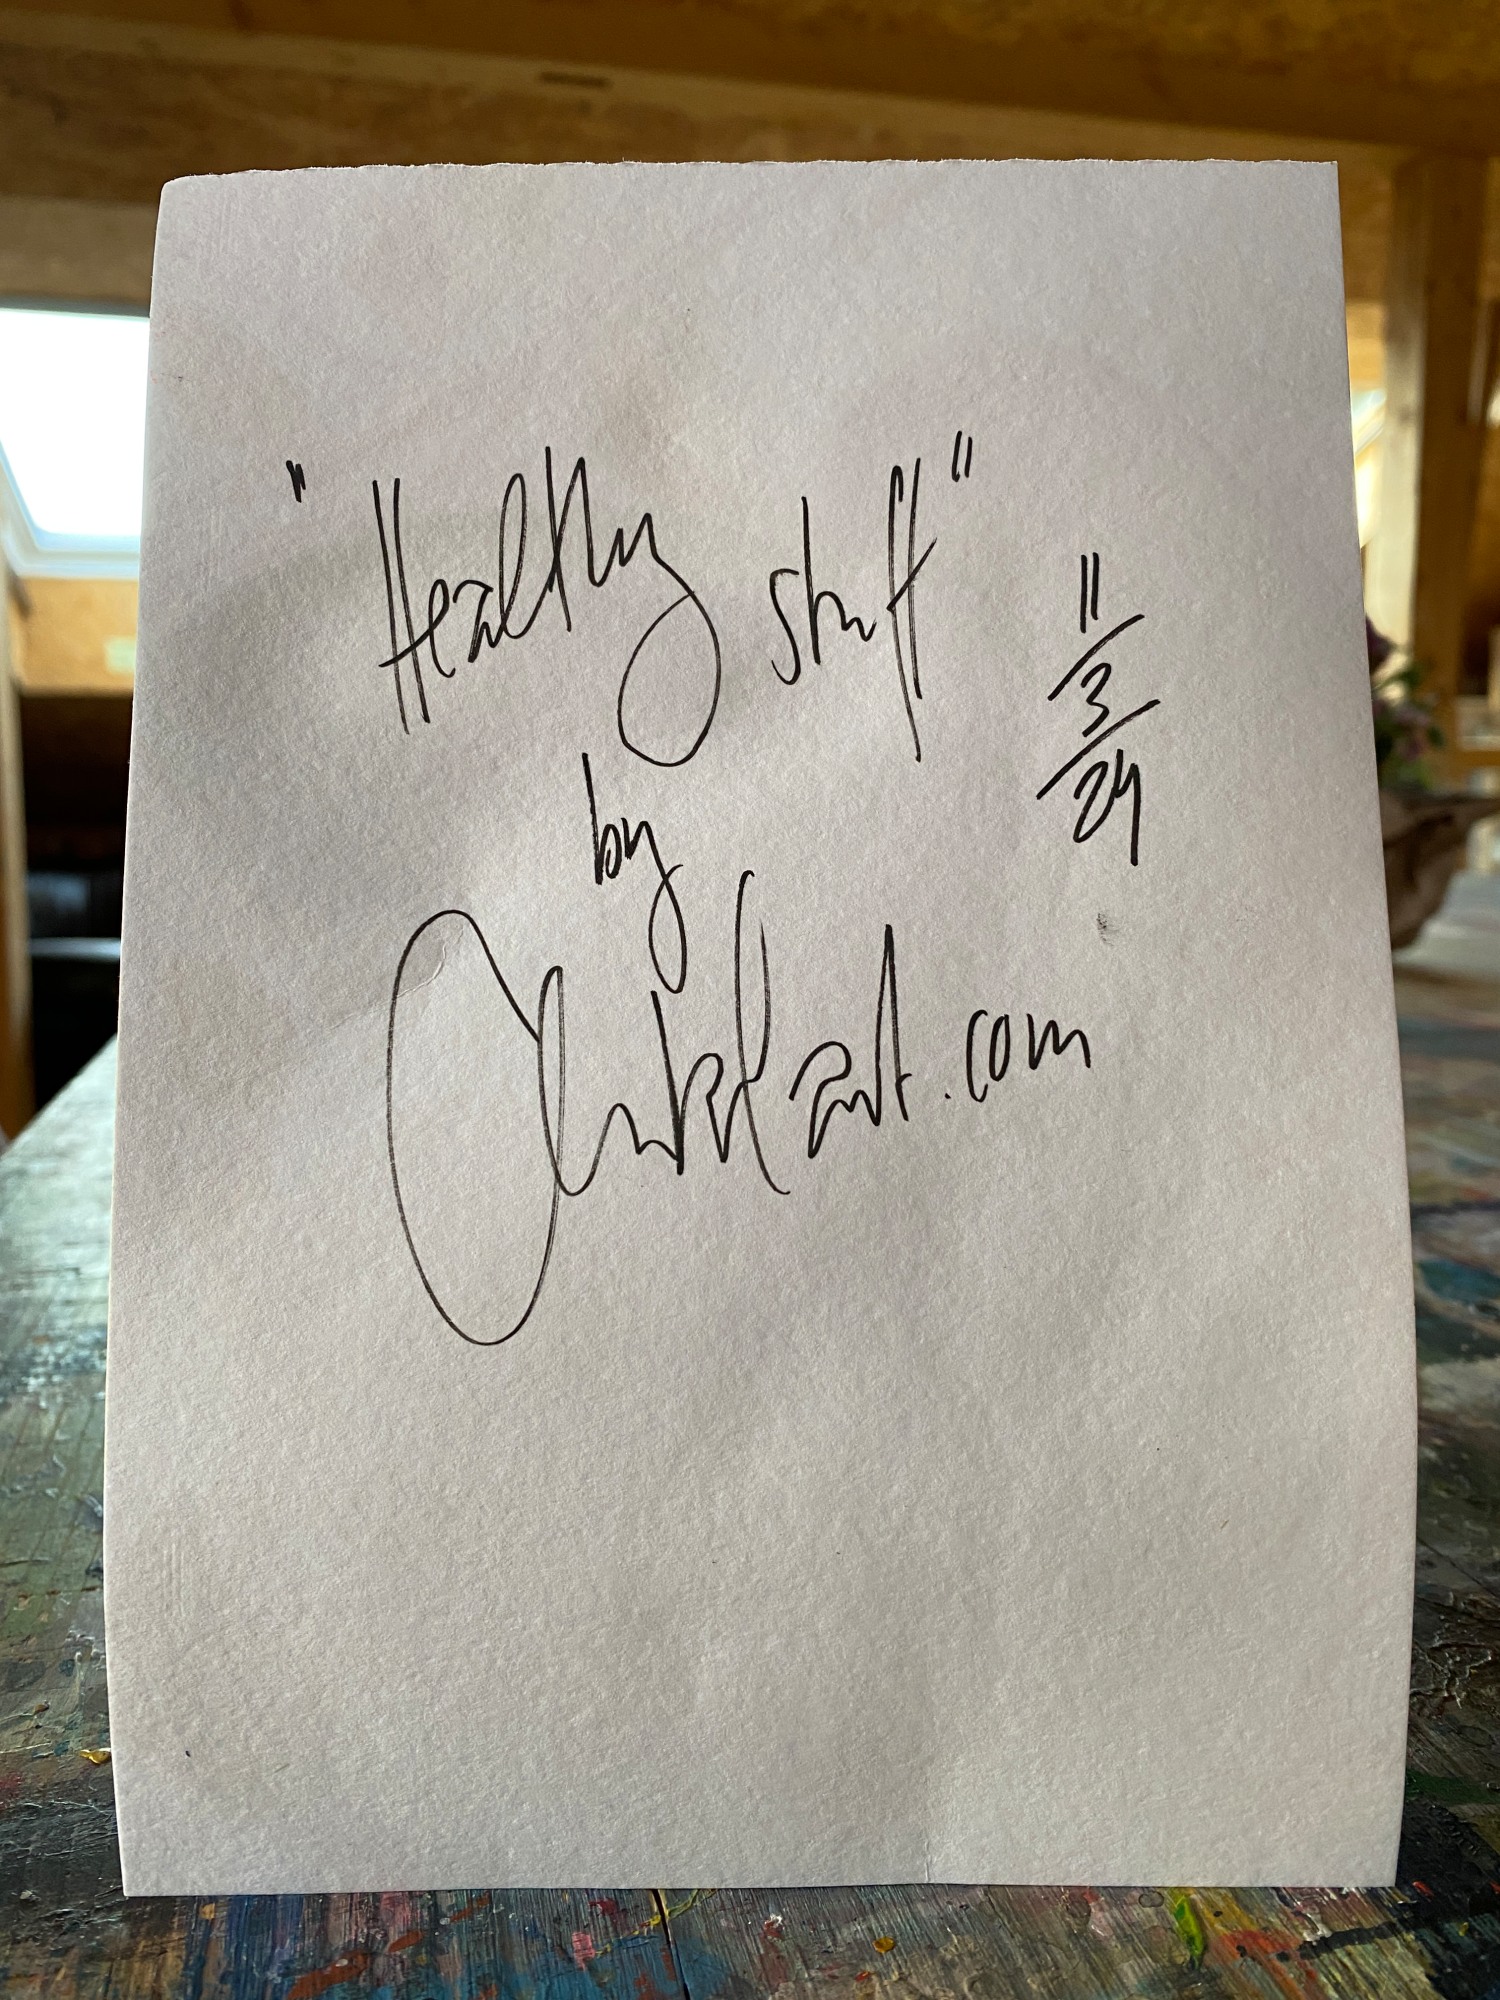 "Healthy stuff"
11/3/24
by
art.com